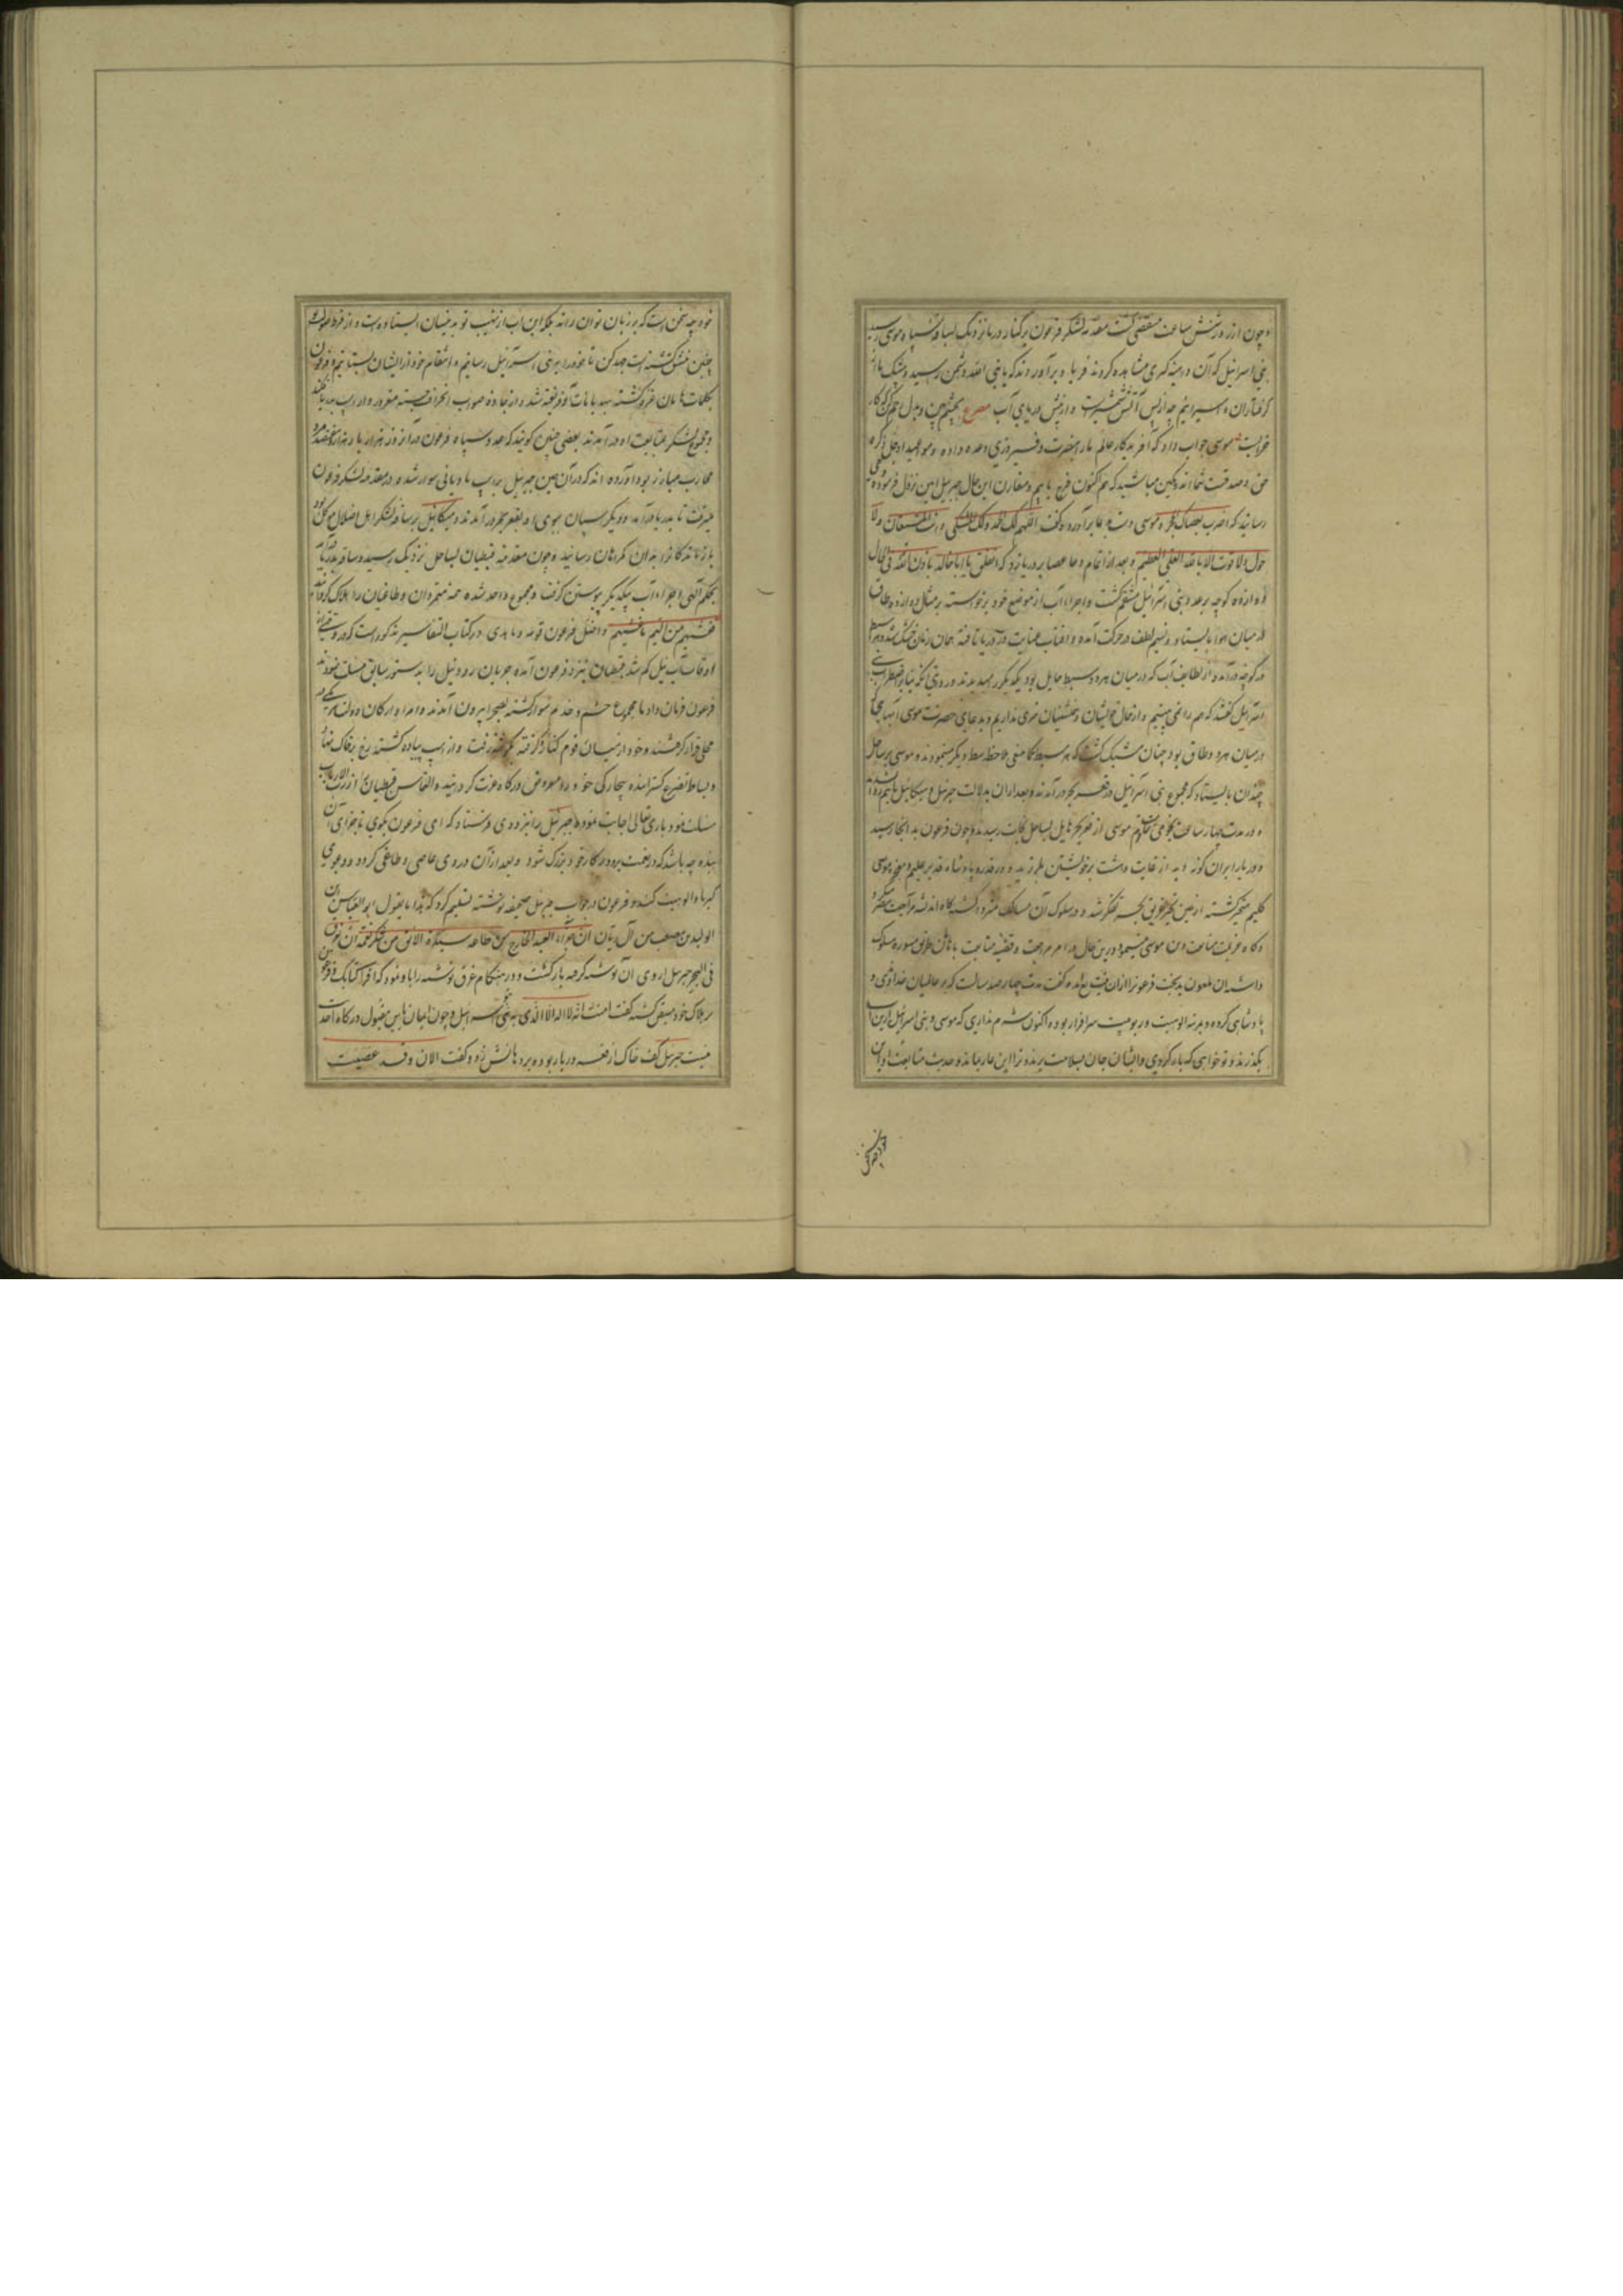 و چون از روز شش ساعت منقضی گشت مقدمه لشکر فرعون بر کنار دریا نزدیک بساقه سپاه موسی رسید
بنی اسرائیل که آن دیدند کبری مشاهده کردند فریاد برآوردند که یا نبی الله دشمن رسید و بیشک ما
گرفتاران و اسیرانیم چه از پس آتش شمشیرست و از پیش دریای آب مصرع
موسی جواب داد که آفریدگار عالم ما را بنصرت و فیروزی وعده داده و مواعید او جل ذکره
حق و صدقست شما اندوهگین مباشید که هم اکنون فرج یابیم و مقارن این حال جبرئیل امین نزول فرموده وحی
رسانید که اضرب بعصاک البحر و موسی دست بدعا برآورده گفت اللهم لک الحمد و الیک المشتکی و انت المستعان و لا
حول و لا قوت الا بالله العلی العظیم و بعد از اتمام دعا عصا بر دریا زد که انفلق یا ابا خالد باذن الله فی الحال
دوازده کوچه بر عدد بنی اسرائیل منشق گشت و اجزاء آب از موضع خود برخواسته بر مثال دوازده طاق
در میان هوا بایستاد و نسیم لطف در حرکت آمده و آفتاب عنایت در دریا تافته همان زمان خشک شد و هر سبط
در کوچه درآمده از لطایف آب که در میان هر دو سبط حایل بود یکدیگر را میدیدند
اسرائیل گفتند که هم را نمی بینیم و از حال خویشان و بخشیان خبری نداریم و بدعای حضرت موسی آبها که
در میان هر دو طاق بود چنان مشبک گشت که هر سبط کما ینبغی ملاحظه سبط دیگر مینمودند و موسی بر ساحل
چندان بایستاد که مجموع بنی اسرائیل در قعر بحر درآمدند و بعد از آن بدلالت جبرئیل و میکائیل
و در مدت چهار ساعت نجومی موسی از قعر بحر هایل بساحل نجات رسیدند و چون فرعون بدانجا رسید
و دریا را بر آن گونه دید از غایت دهشت بر خویشتن بلرزید و در قدرت پادشاه قدیر علیم و معجزه موسی
کلیم متحیر گشته از عین تحیر غریق بحر تفکر شد و در سلوک آن مسالک متردد گشته گاه اندیشه مراجعت میکرد
و گاه عزیمت متابعت موسی مینمود و درین حال در امر مراجعت و قضیه متابعت با هامان طریق مشوره مسلوک
داشته آن ملعون بدبخت فرعون را از آن نیت مانع آمده گفت مدت چهارصد سالست که بر عالمیان خدائی و
پادشاهی کرده و بمرتبه الوهیت و ربوبیت سرافراز بوده اکنون شرم نداری که موسی و بنی اسرائیل ازین آب
بگذرند و تو خواهی که باز گردی و ایشان جان بسلامت برند و ترا این عار بماند و حدیث متابعت او
خود چه سخن
خود چه سخن است که بر زبان توان راند بلکه این آب از هیبت تو بدینسان ایستاده است و از فرط صولت تو
چنین منشق گشته است جهد کن تا خود را ببنی اسرائیل رسانیم و انتقام خود از ایشان بستانیم و فرعون
بکلمات هامان غره گشته بمهمات او فریفته شد و از جاده صواب انحراف جسته
و مجموع لشکر بمتابعت او درآمدند بعضی چنین گویند که عدد سپاه فرعون در آن روز هزار بار هزار و هفتصد مرد
محارب مبارز بود و آورده اند که در آن حین جبرئیل بر اسب مادیانی سوار شده در مقدمه لشکر فرعون
میرفت تا بدریا درآمد و دیگر اسپان ببوی او بقعر بحر درآمدند و میکائیل بر ساقه لشکر اهل ضلال موکل بود
بازماندگان را بدان گمراهان رسانید و چون مقدمه قبطیان بساحل نزدیک رسید و ساقه بدریا درآمد
بحکم الهی اجزاء آب بیکدیگر پیوستن گرفت و مجموع واحد شده همه متمردان و طاغیان را هلاک گردانید
فغشیهم من الیم ما غشیهم و اضل فرعون قومه و ما هدی در کتاب التفاسیر مذکور است که در وقتی از
اوقات آب نیل کم شد قبطیان نزد فرعون آمده جریان رود نیل را بدستور سابق مسئلت نمودند
فرعون فرمان داد تا مجموع حشم و خدم سوار گشته بصحرا بیرون آمدند و امرا و ارکان دولت هر یکی در
محلی قرار گرفتند و خود از میان قوم کنار گرفته بگوشه رفت و از اسب پیاده گشته رخ بر خاک نهاد
و بساط تضرع گسترانیده بیچارگی خود را معروض درگاه عزت گردانید و التماس قبطیان را از رب الارباب
مسئلت نمود باری تعالی اجابت نموده جبرئیل را نزد وی فرستاد که ای فرعون بگوی تا جزای آن
بنده چه باشد که در نعمت پروردگار خود بزرگ شود و بعد از آن در وی عاصی و طاغی گردد و دعوی
کبریا و الوهیت کند و فرعون در جواب جبرئیل صحیفه نوشته تسلیم کرد که هذا ما یقول ابو العباس
الولید بن مصعب من آل ریان ان جزاء العبد الخارج عن طاعة سیده الآبق من شکر نعمه ان یغرق
فی البحر جبرئیل از وی آن نوشته گرفته بازگشت و در هنگام غرق نوشته را باو نمود که اقرأ کتابک فرعون
بر هلاک خود متیقن گشته گفت امنت انه لا اله الا الذی امنت به بنو اسرائیل و چون ایمان یأس مقبول درگاه احدیت
نیست جبرئیل کف خاک از قعر دریا ربوده بر دهانش زد و گفت الان و قد عصیت